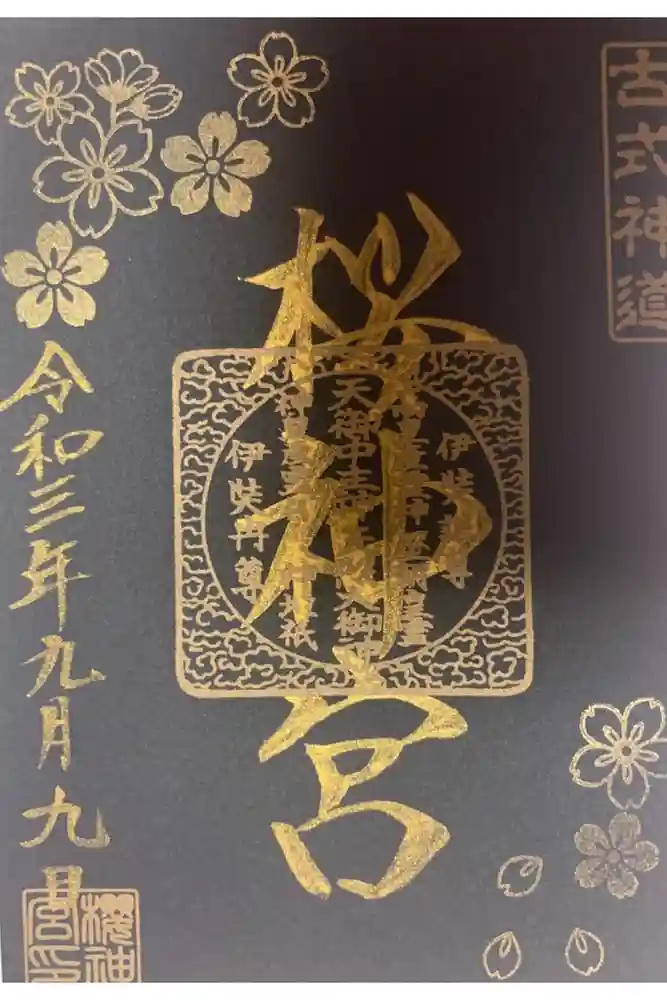 古式神道
桜神宮
伊弉諾尊
天御中主
天御神
伊弉冉尊
令和三年九月九日
櫻神
宮印